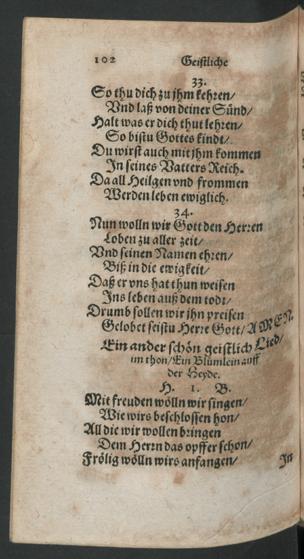 102 Geistliche
33.
So thu dich zu jhm kehren/
Vnd laß von deiner Sünd/
Halt was er dich thut lehren/
So bistu Gottes kindt/
Du wirst auch mit jhm kommen
In seines Vatters Reich.
Da all Heilgen vnd frommen
Werden leben ewiglich.
34.
Nun wolln wir Gott den Herren
Loben zu aller zeit/
Vnd seinen Namen ehren/
Biß in die ewigkeit/
Daß er vns hat thun weisen
Ins leben auß dem todt/
Drumb sollen wir jhn preisen
Gelobet seistu Herre Gott/ AMEN.
Ein ander schön geistlich Lied/
im thon/ Ein Blümlein auff
der Heyde.
H. 1. B.
Mit freuden wölln wir singen/
Wie wirs beschlossen hon/
All die wir wollen bringen
Dem Herrn das opffer schon/
Frölig wölln wirs anfangen/
In